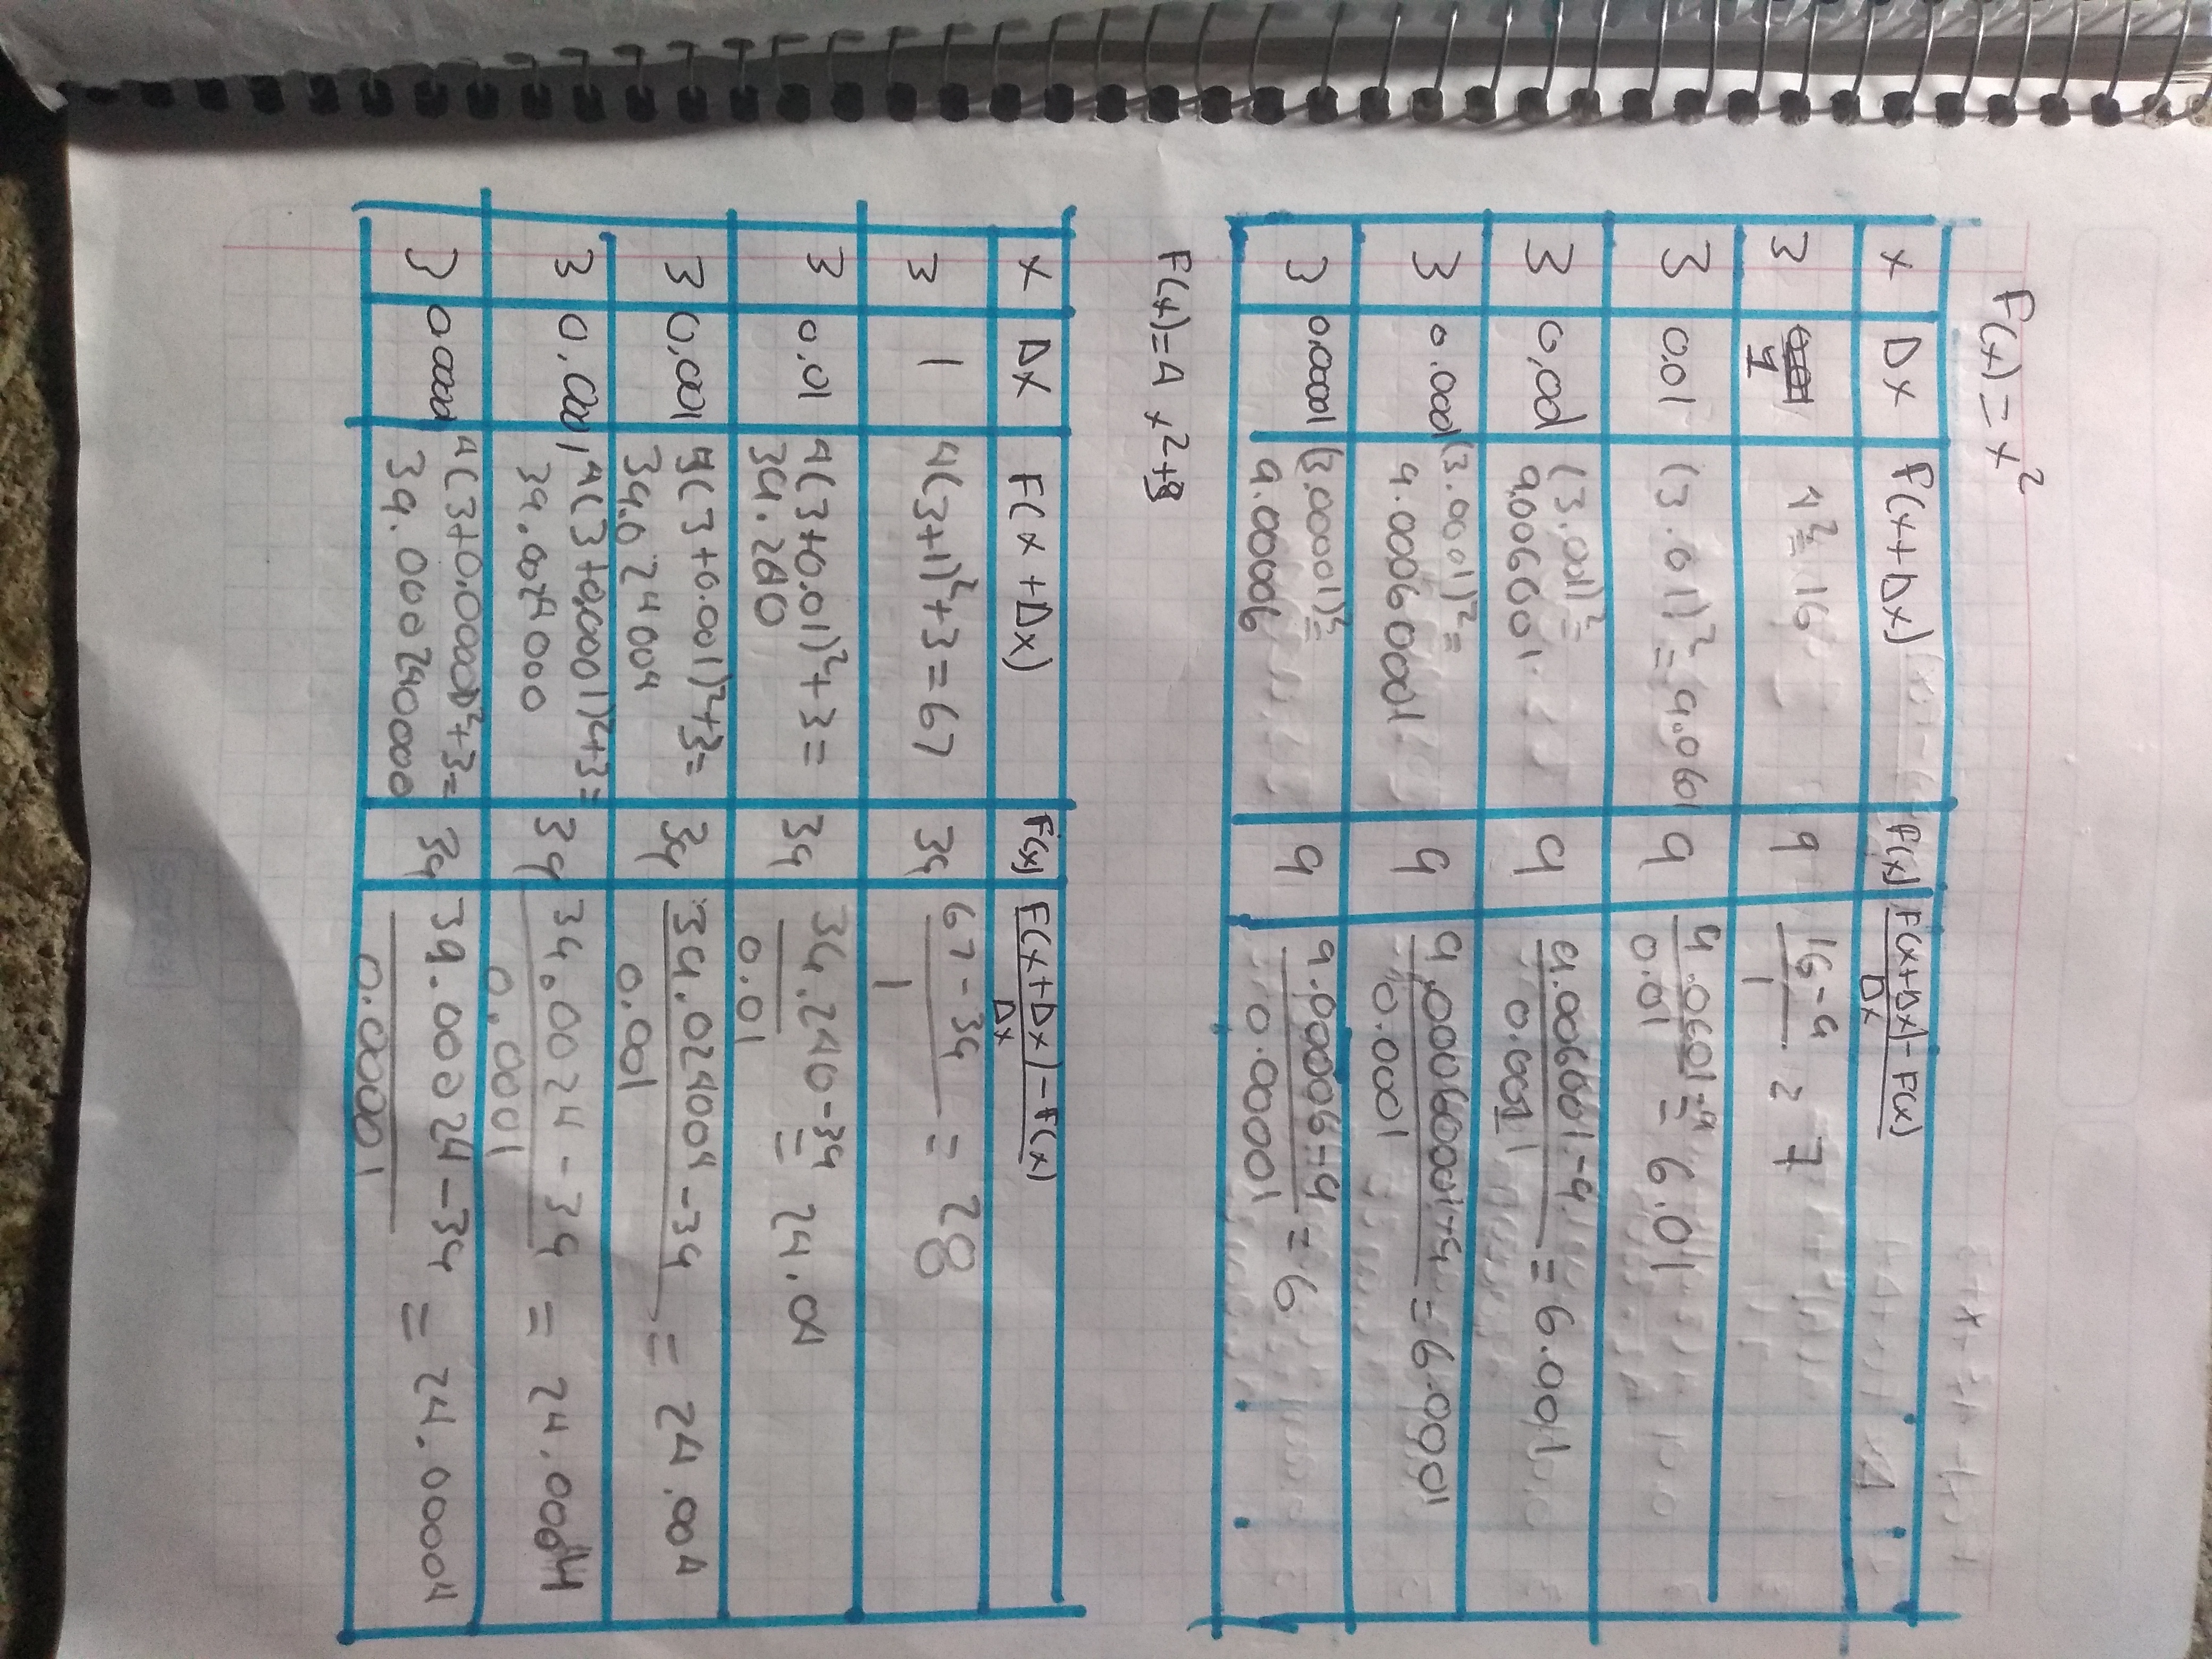 F(x) = x²
x Δx F(x+Δx) F(x) F(x+Δx)-F(x)
Δx
3 1 4²=16 9 16-9 = 7
1
3 0.01 (3.01)²=9.0601 9 9.0601-9 = 6.01
0.01
3 0.001 (3.001)²= 9 9.006001-9 = 6.001
9.006001 0.001
3 0.0001 (3.0001)²= 9 9.00060001-9 = 6.0001
9.00060001 0.0001
3 0.00001 (3.00001)²= 9 9.00006-9 = 6
9.00006 0.00001
F(x)=4x²+3
x Δx F(x+Δx) F(x) F(x+Δx)-F(x)
Δx
3 1 4(3+1)²+3=67 39 67-39 = 28
1
3 0.01 4(3+0.01)²+3= 39 39.240-39 = 24.04
39.240 0.01
3 0.001 4(3+0.001)²+3= 39 39.024004-39 = 24.004
39.024004 0.001
3 0.0001 4(3+0.0001)²+3= 39 39.0024-39 = 24.0004
39.0024000 0.0001
3 0.00001 4(3+0.00001)²+3= 39 39.00024-39 = 24.00004
39.000240000 0.00001